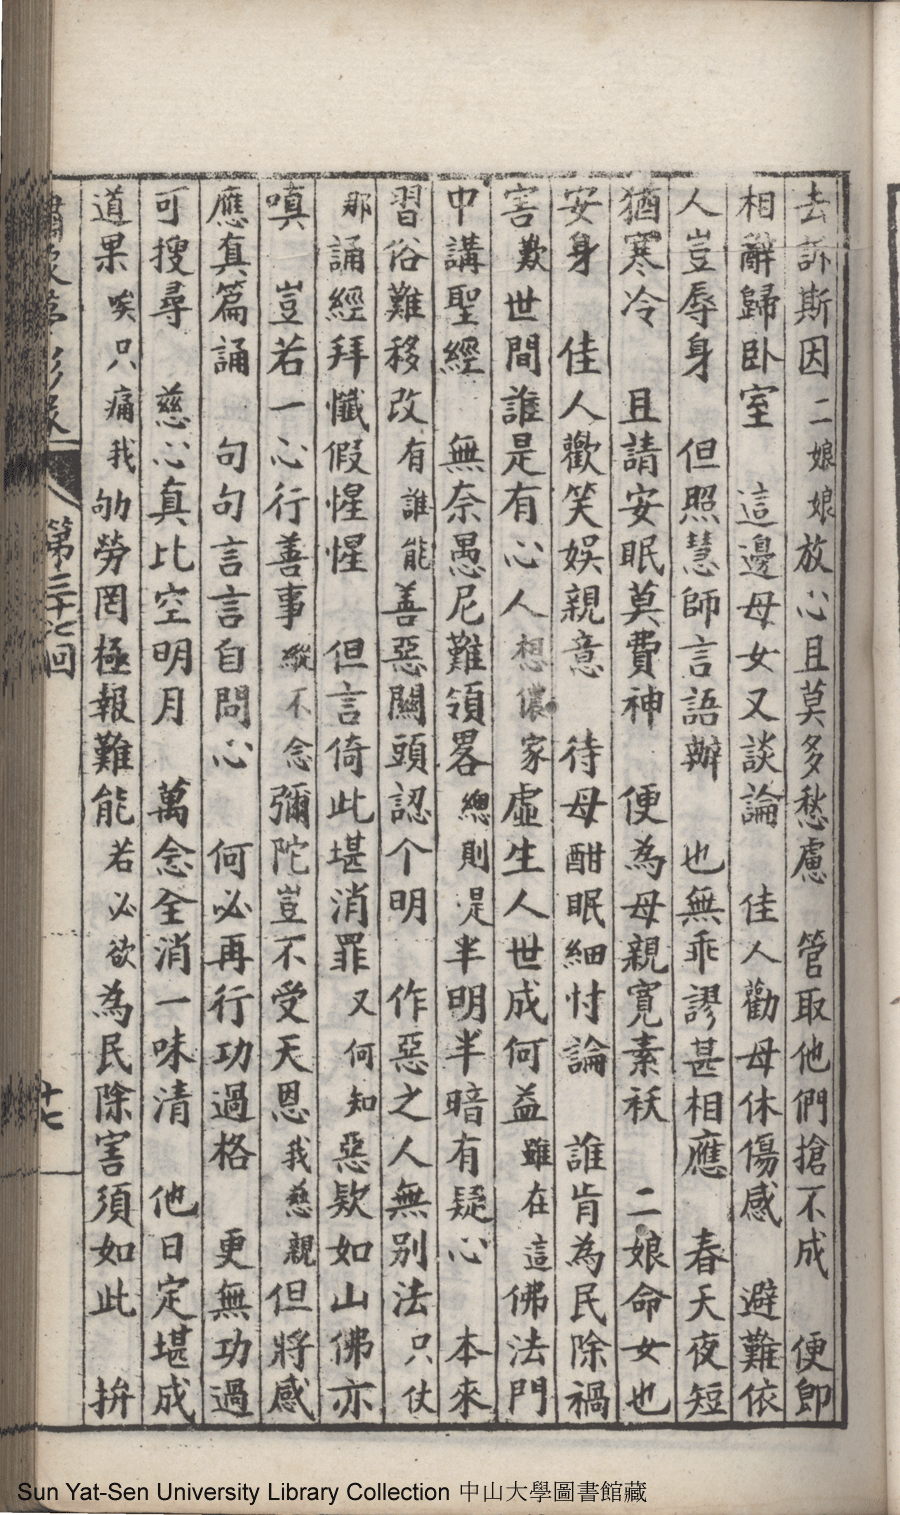 去訴斯因 二娘娘放心且莫多愁慮 管取他們搶不成 便即
相辭歸卧室 這邊母女又談論 佳人勸母休傷感 避難依
人豈辱身 但照慧師言語辦 也無乖謬甚相應 春天夜短
猶寒冷 且請安眠莫費神 便為母親寬素袄 二娘命女也
安身 佳人歡笑娛親意 待母酣眠細忖論 誰肯為民除禍
害 歎世間誰是有心人 想儂家虛生人世成何益 雖在這佛法門
中講聖經 無奈愚尼難領畧 總則是半明半暗有疑心 本來
習俗難移改 有誰能善惡關頭認个明 作惡之人無别法 只仗
那誦經拜懺假惺惺 但言倚此堪消罪 又何知惡欵如山佛亦
嗔 豈若一心行善事 縱不念彌陀豈不受天恩 我慈親但將感
應真篇誦 句句言言自問心 何必再行功過格 更無功過
可搜尋 慈心真比空明月 萬念全消一味清 他日定堪成
道果 唉只痛我劬勞罔極報難能 若必欲為民除害須如此 拚
第三十七回
十七
Sun Yat-Sen University Library Collection 中山大學圖書館藏